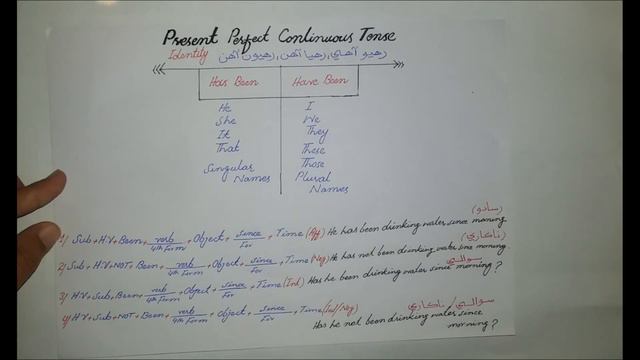 Present Perfect Continuous Tense
Identity رهيو آهي, رهيا آهن, رهيون آهن
Has Been Have Been
He I
She We
It They
That These
Singular Names Those
Plural Names
(سادو)
1) Sub+H.V+Been+verb/4th Form+Object+since/For+Time (Aff) He has been drinking water since morning
(ناڪاري)
2) Sub+H.V+NOT+Been+verb/4th Form+Object+since/For+Time (Neg) He has not been drinking water since morning.
سوالي
3) H.V+Sub+Been+verb/4th Form+Object+since/For+Time (Int) Has he been drinking water since morning?
سوالي / ناڪاري
4) H.V+Sub+NOT+Been+verb/4th Form+Object+since/For+Time (Int/Neg) Has he not been drinking water since
morning?